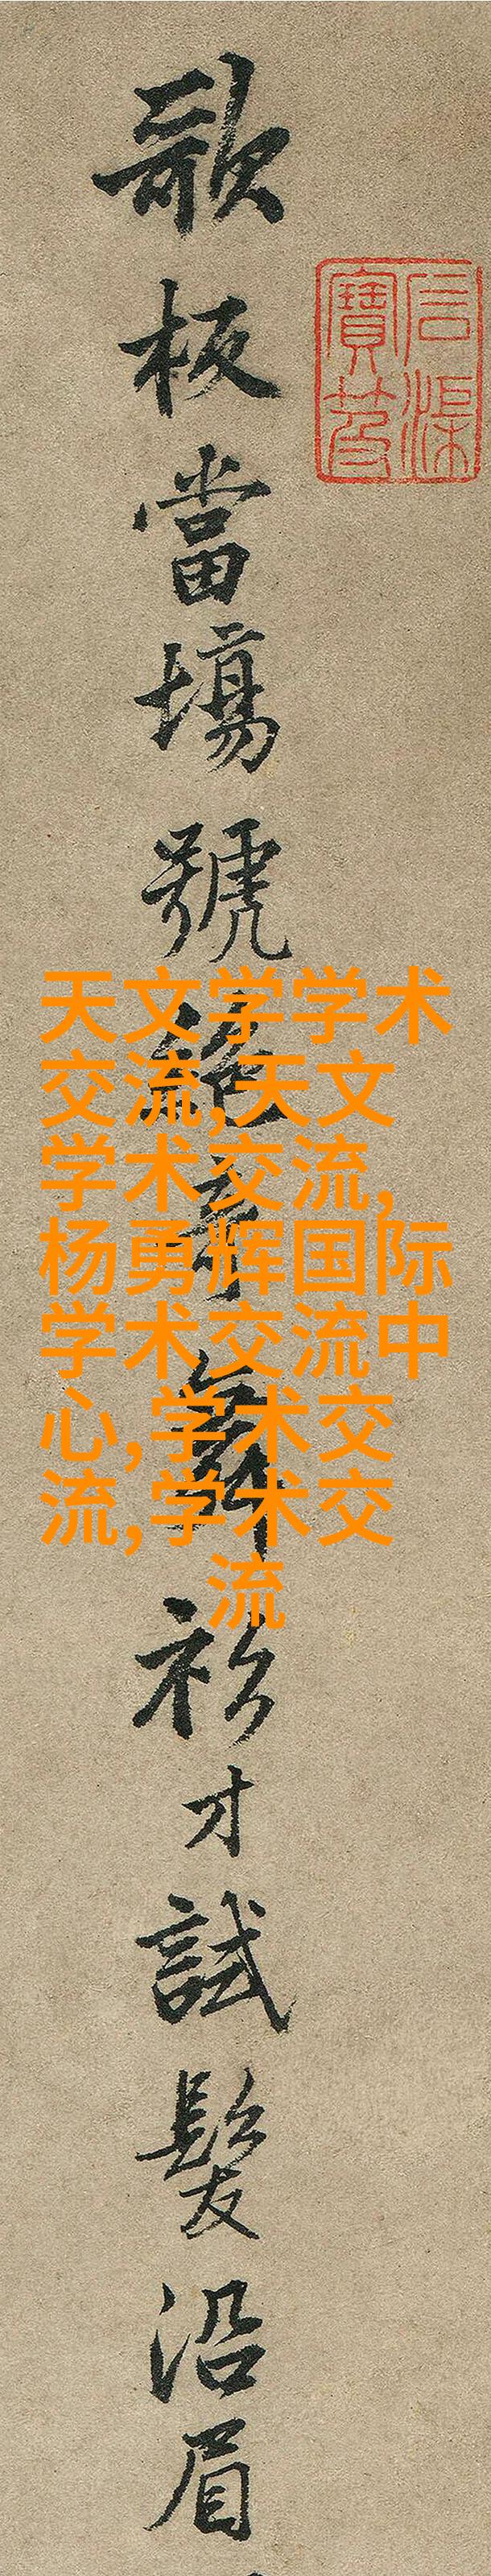 歌板當場號絕奇舞衫才試髮沿眉
石渠
寶笈
天文学学术
交流,天文
学术交流,
杨勇辉国际
学术交流中
心,学术交
流,学术交
流